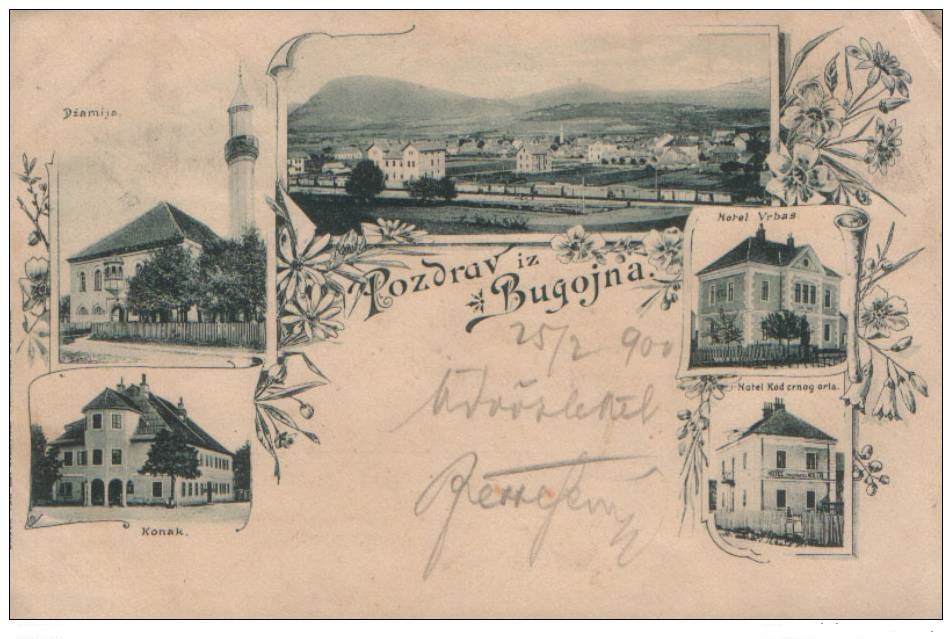 Džamija.
Hotel Vrbas.
Pozdrav iz
Bugojna.
25/2 900
Üdvözlettel
Hotel Kod crnog orla.
Konak.